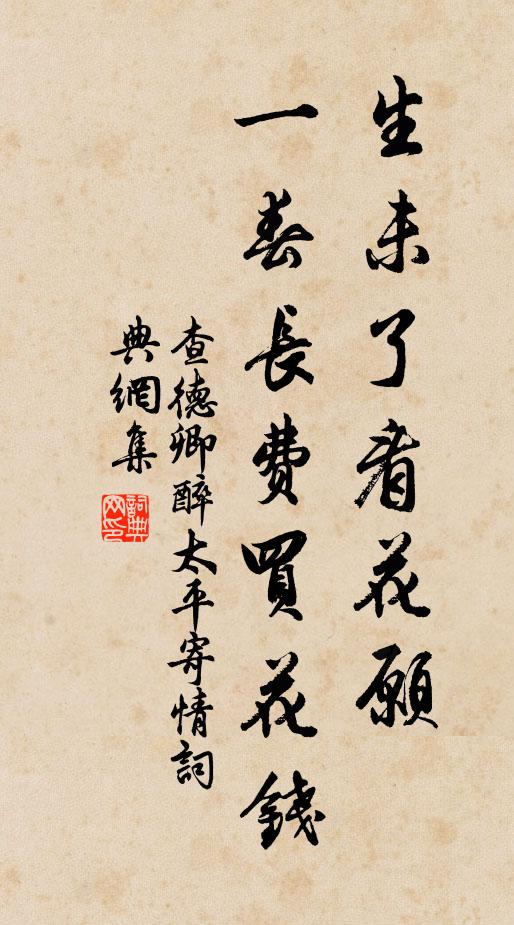 生未了看花願
一春長費買花錢
查德卿醉太平寄情詞
典網集
詞典
网印